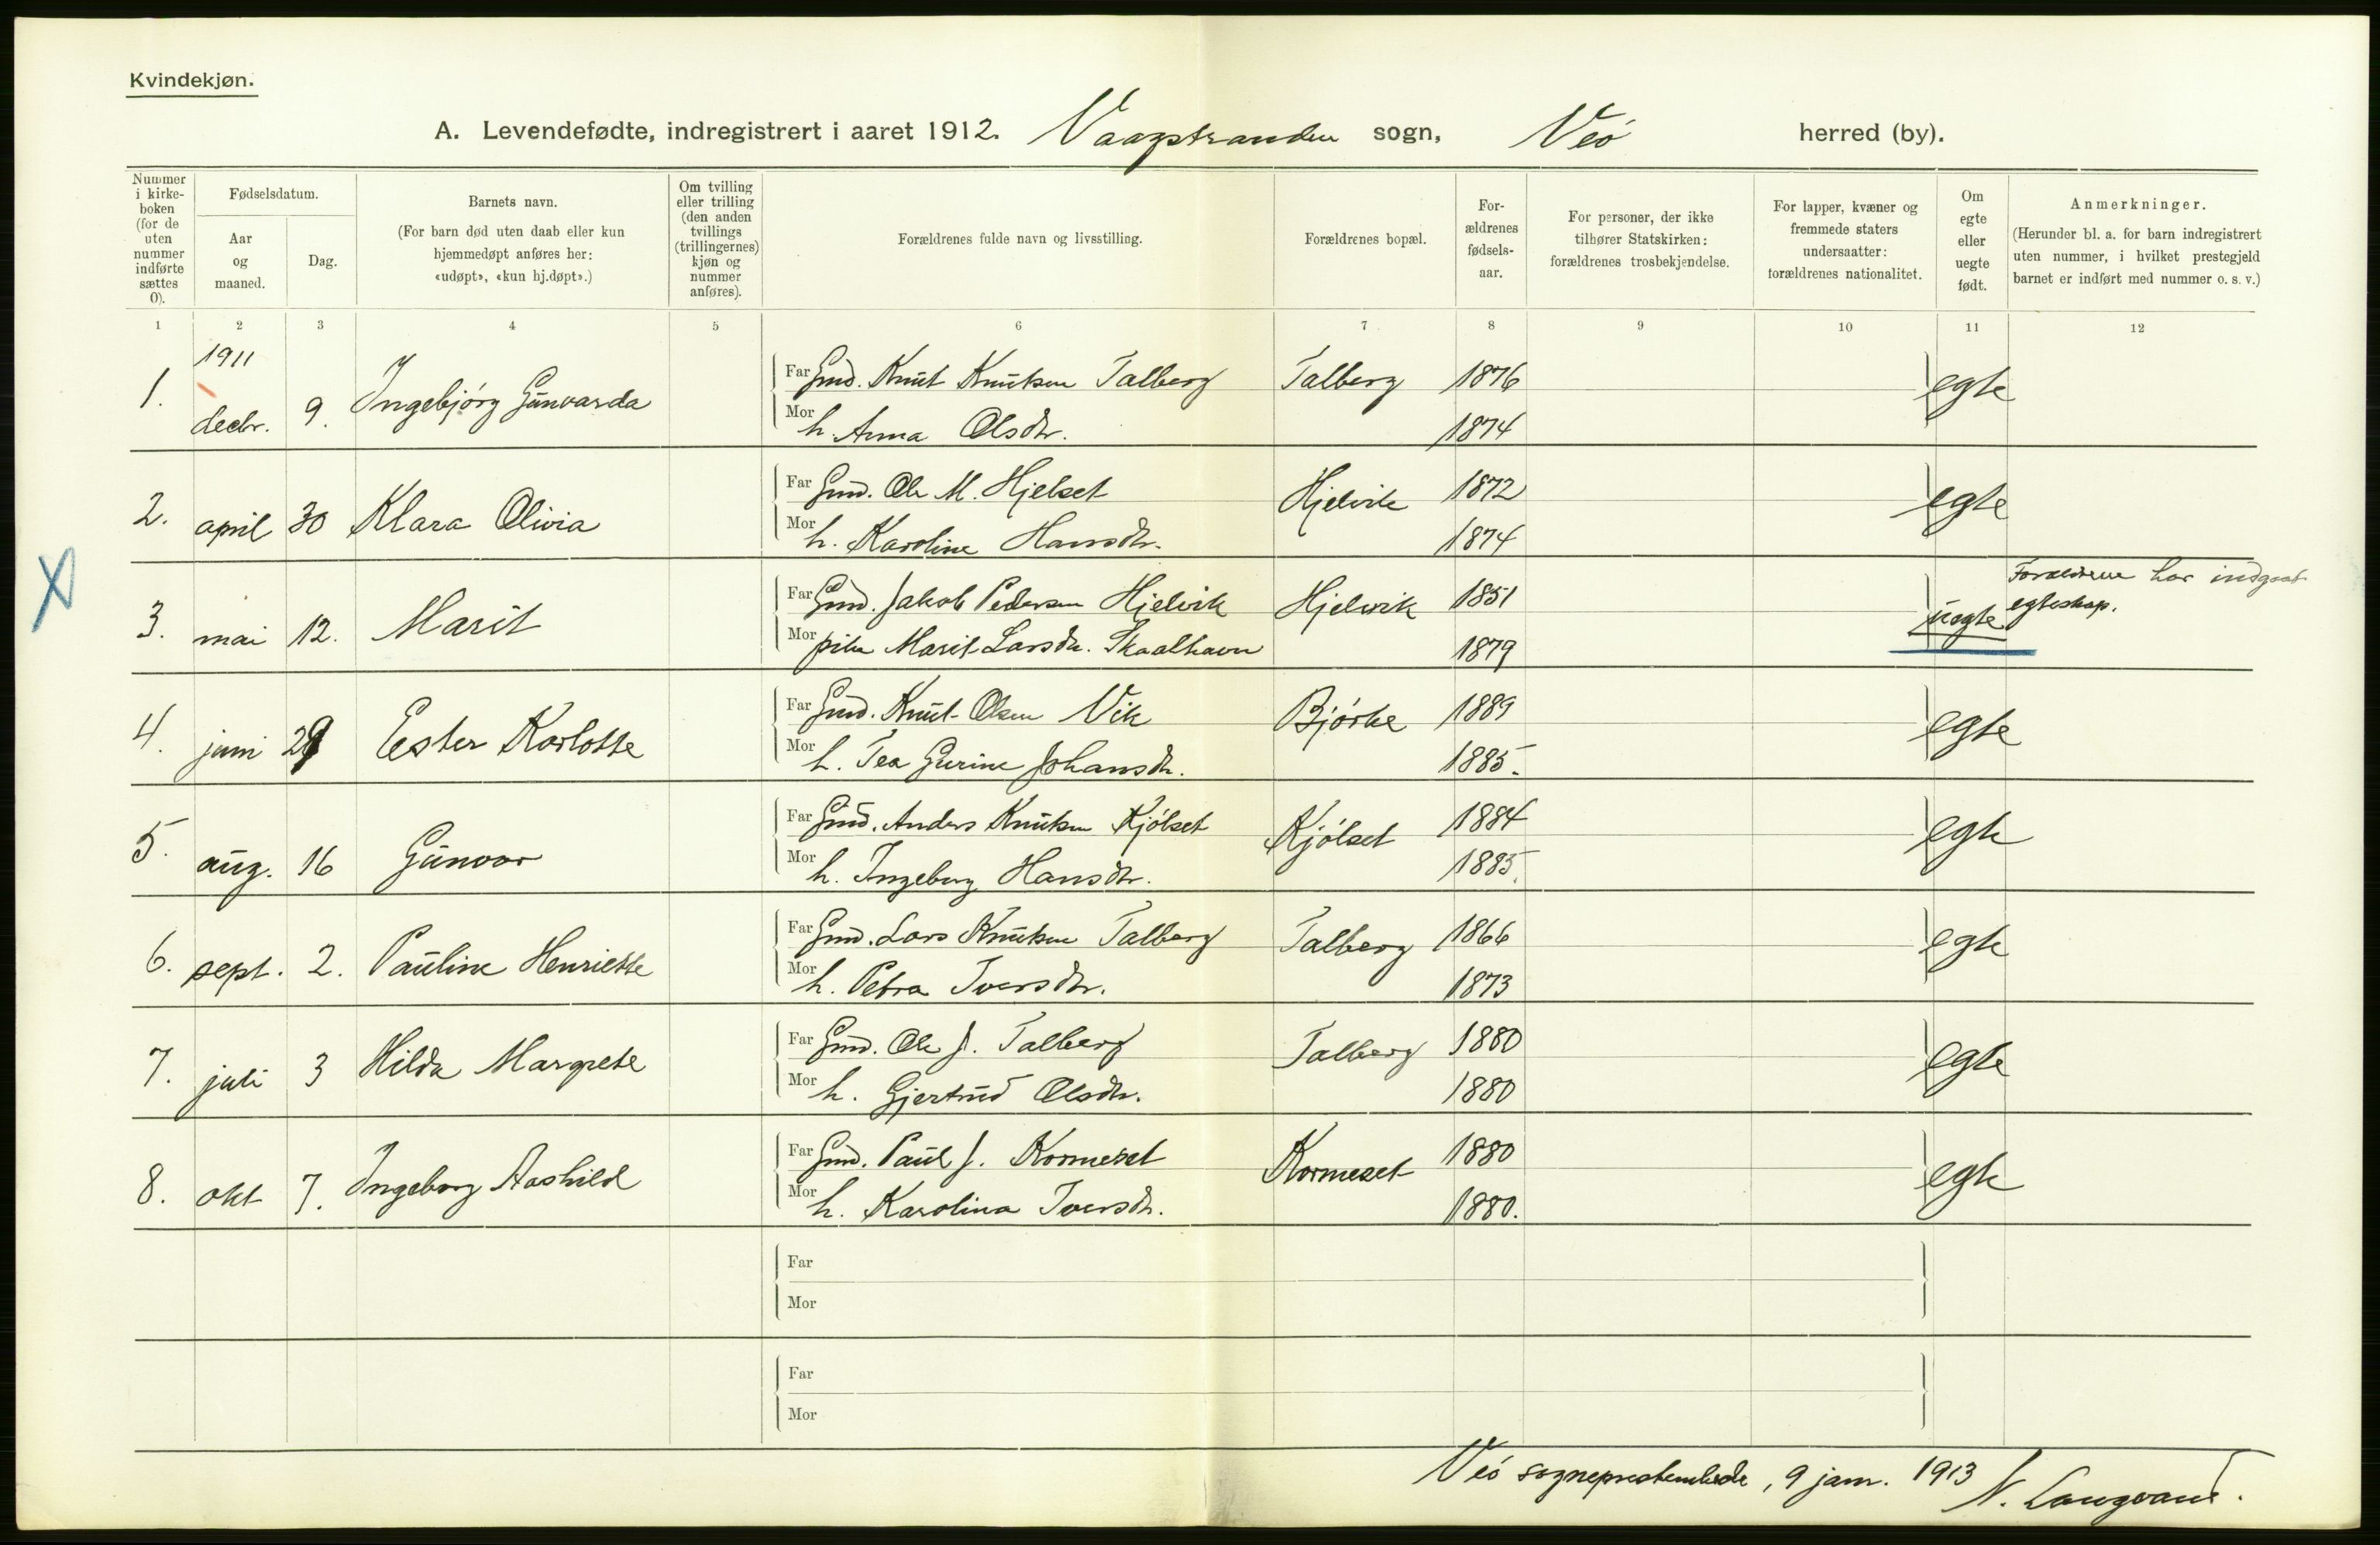 Kvindekjøn.
A. Levendefødte, indregistrert i aaret 1912. Vaagstranden sogn, Veø herred (by).
Nummer i kirke-boken (for de uten nummer indførte sættes 0).
Fødselsdatum.
Aar og maaned.
Dag.
Barnets navn.
(For barn død uten daab eller kun hjemmedøpt anføres her: «udøpt», «kun hj.døpt».)
Om tvilling eller trilling (den anden tvillings (trillingernes) kjøn og nummer anføres).
Forældrenes fulde navn og livsstilling.
Forældrenes bopæl.
For-ældrenes fødsels-aar.
For personer, der ikke tilhører Statskirken: forældrenes trosbekjendelse.
For lapper, kvæner og fremmede staters undersaatter: forældrenes nationalitet.
Om egte eller uegte født.
Anmerkninger.
(Herunder bl. a. for barn indregistrert uten nummer, i hvilket prestegjeld barnet er indført med nummer o. s. v.)
1 2 3 4 5 6 7 8 9 10 11 12
1911
1. decbr. 9. Ingebjørg Gunvarda Far Gmd. Knut Knutsen Talberg Talberg 1876 egte
Mor h. Anna Olsdtr. 1874
2. april 30 Klara Olivia Far Gmd. Ole M. Hjelset Hjelvik 1872 egte
Mor h. Karoline Hansdtr. 1874
3. mai 12. Marit Far Gmd. Jakob Pedersen Hjelvik Hjelvik 1851 uegte Forældrene har indgaat egteskap.
Mor pike Marit Larsdtr. Skaalhavn 1879
4. juni 29 Ester Karlotte Far Gmd. Knut Olsen Vik Bjørke 1889 egte
Mor h. Tea Gurine Johansdtr. 1885.
5. aug. 16 Gunvor Far Gmd. Anders Knutsen Kjølset Kjølset 1884 egte
Mor h. Ingeborg Hansdtr. 1885.
6. sept. 2. Pauline Henriette Far Gmd. Lars Knutsen Talberg Talberg 1866 egte
Mor h. Petra Iversdtr. 1873
7. juli 3 Hilda Margrete Far Gmd. Ole J. Talberg Talberg 1880 egte
Mor h. Gjertrud Olsdtr. 1880
8. okt 7. Ingeborg Aashild Far Gmd. Paul J. Kormeset Kormeset 1880 egte
Mor h. Karolina Iversdtr. 1880.
Far
Mor
Far
Mor
Veø sogneprestembede, 9 jan. 1913 N. Langvand.